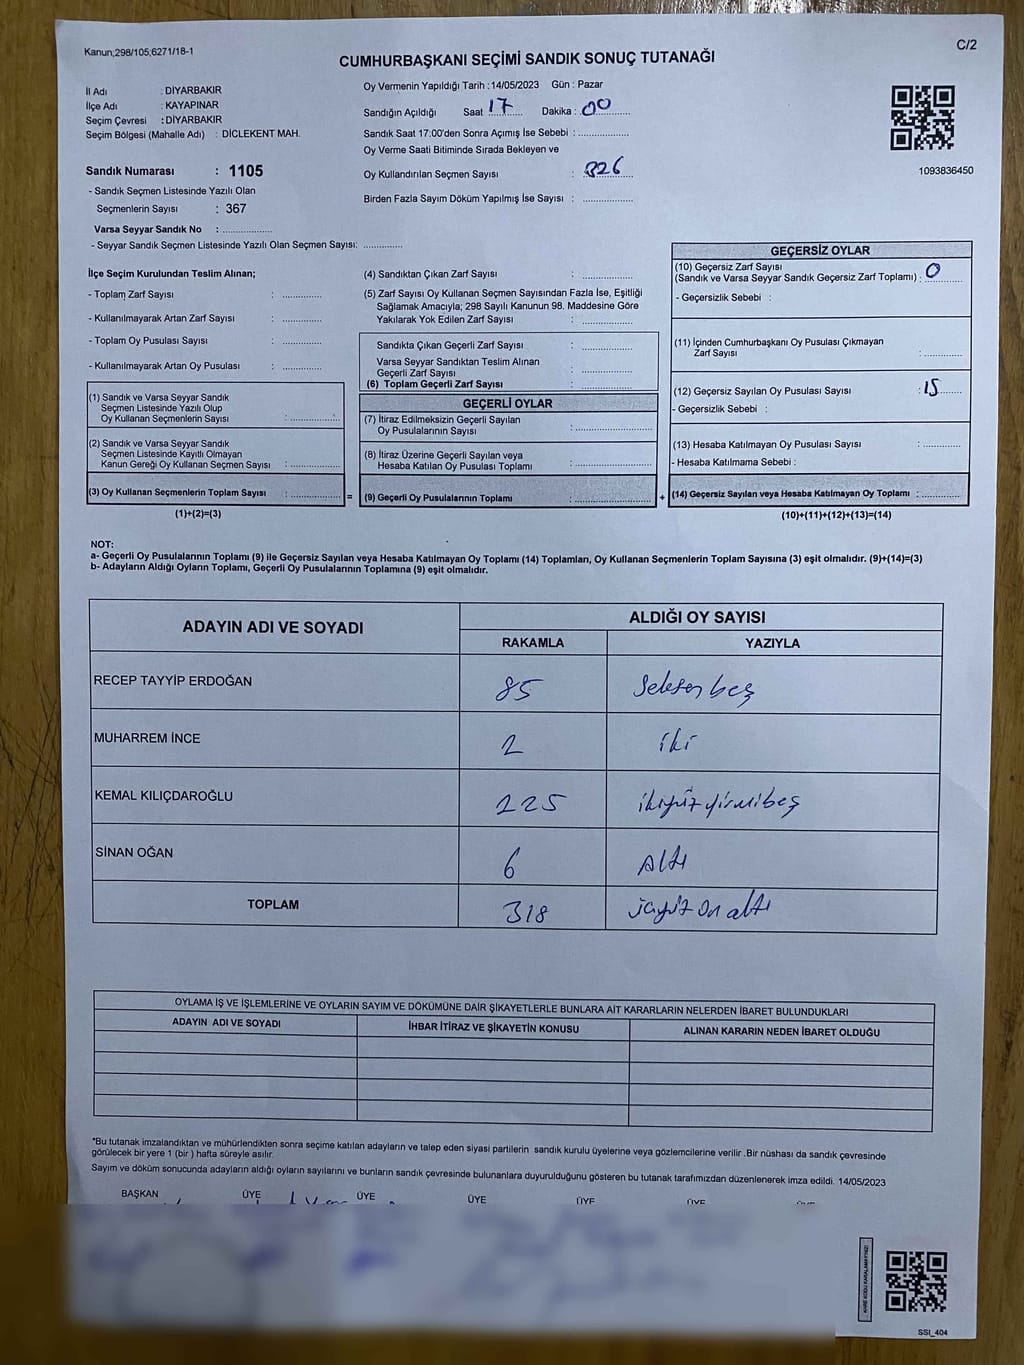 Kanun;298/105;6271/18-1
C/2
CUMHURBAŞKANI SEÇİMİ SANDIK SONUÇ TUTANAĞI
İl Adı : DİYARBAKIR
İlçe Adı : KAYAPINAR
Seçim Çevresi : DİYARBAKIR
Seçim Bölgesi (Mahalle Adı) : DİCLEKENT MAH.
Sandık Numarası : 1105
- Sandık Seçmen Listesinde Yazılı Olan
Seçmenlerin Sayısı : 367
Varsa Seyyar Sandık No : ..................
- Seyyar Sandık Seçmen Listesinde Yazılı Olan Seçmen Sayısı: ..............
Oy Vermenin Yapıldığı Tarih :14/05/2023 Gün : Pazar
Sandığın Açıldığı Saat 17 Dakika : 00
Sandık Saat 17:00'den Sonra Açımış İse Sebebi : ..................
Oy Verme Saati Bitiminde Sırada Bekleyen ve
Oy Kullandırılan Seçmen Sayısı : 326
Birden Fazla Sayım Döküm Yapılmış İse Sayısı : ..................
1093836450
İlçe Seçim Kurulundan Teslim Alınan;
- Toplam Zarf Sayısı : ..............
- Kullanılmayarak Artan Zarf Sayısı : ..............
- Toplam Oy Pusulası Sayısı : ..............
- Kullanılmayarak Artan Oy Pusulası : ..............
(1) Sandık ve Varsa Seyyar Sandık
Seçmen Listesinde Yazılı Olup
Oy Kullanan Seçmenlerin Sayısı : ..................
(2) Sandık ve Varsa Seyyar Sandık
Seçmen Listesinde Kayıtlı Olmayan
Kanun Gereği Oy Kullanan Seçmen Sayısı : ..................
(3) Oy Kullanan Seçmenlerin Toplam Sayısı : ..................
(1)+(2)=(3)
=
(4) Sandıktan Çıkan Zarf Sayısı : ..................
(5) Zarf Sayısı Oy Kullanan Seçmen Sayısından Fazla İse, Eşitliği
Sağlamak Amacıyla; 298 Sayılı Kanunun 98. Maddesine Göre
Yakılarak Yok Edilen Zarf Sayısı : ..................
Sandıkta Çıkan Geçerli Zarf Sayısı : ..................
Varsa Seyyar Sandıktan Teslim Alınan
Geçerli Zarf Sayısı : ..................
(6) Toplam Geçerli Zarf Sayısı : ..................
GEÇERLİ OYLAR
(7) İtiraz Edilmeksizin Geçerli Sayılan
Oy Pusulalarının Sayısı : ..................
(8) İtiraz Üzerine Geçerli Sayılan veya
Hesaba Katılan Oy Pusulası Toplamı : ..................
(9) Geçerli Oy Pusulalarının Toplamı : ..................
+
GEÇERSİZ OYLAR
(10) Geçersiz Zarf Sayısı
(Sandık ve Varsa Seyyar Sandık Geçersiz Zarf Toplamı) : 0
- Geçersizlik Sebebi :
(11) İçinden Cumhurbaşkanı Oy Pusulası Çıkmayan
Zarf Sayısı : ..............
(12) Geçersiz Sayılan Oy Pusulası Sayısı : 15
- Geçersizlik Sebebi :
(13) Hesaba Katılmayan Oy Pusulası Sayısı : ..............
- Hesaba Katılmama Sebebi :
(14) Geçersiz Sayılan veya Hesaba Katılmayan Oy Toplamı : ..............
(10)+(11)+(12)+(13)=(14)
NOT:
a- Geçerli Oy Pusulalarının Toplamı (9) ile Geçersiz Sayılan veya Hesaba Katılmayan Oy Toplamı (14) Toplamları, Oy Kullanan Seçmenlerin Toplam Sayısına (3) eşit olmalıdır. (9)+(14)=(3)
b- Adayların Aldığı Oyların Toplamı, Geçerli Oy Pusulalarının Toplamına (9) eşit olmalıdır.
ADAYIN ADI VE SOYADI
ALDIĞI OY SAYISI
RAKAMLA YAZIYLA
RECEP TAYYİP ERDOĞAN 85 Seksenbeş
MUHARREM İNCE 2 iki
KEMAL KILIÇDAROĞLU 225 ikiyüzyirmibeş
SİNAN OĞAN 6 Altı
TOPLAM 318 üçyüz on altı
OYLAMA İŞ VE İŞLEMLERİNE VE OYLARIN SAYIM VE DÖKÜMÜNE DAİR ŞİKAYETLERLE BUNLARA AİT KARARLARIN NELERDEN İBARET BULUNDUKLARI
ADAYIN ADI VE SOYADI İHBAR İTİRAZ VE ŞİKAYETİN KONUSU ALINAN KARARIN NEDEN İBARET OLDUĞU
*Bu tutanak imzalandıktan ve mühürlendikten sonra seçime katılan adayların ve talep eden siyasi partilerin sandık kurulu üyelerine veya gözlemcilerine verilir .Bir nüshası da sandık çevresinde
görülecek bir yere 1 (bir ) hafta süreyle asılır.
Sayım ve döküm sonucunda adayların aldığı oyların sayılarını ve bunların sandık çevresinde bulunanlara duyurulduğunu gösteren bu tutanak tarafımızdan düzenlenerek imza edildi. 14/05/2023
BAŞKAN ÜYE ÜYE ÜYE ÜYE ÜYE
KARE KODU KARALAMAYINIZ!
SSİ_404